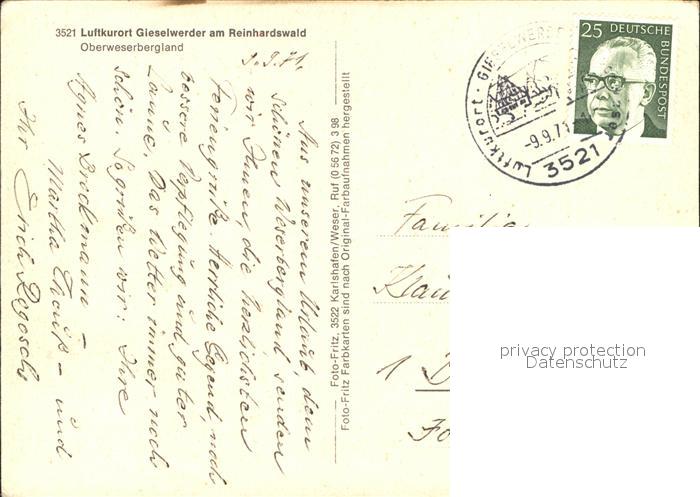 3521 Luftkurort Gieselwerder am Reinhardswald
Oberweserbergland
9.9.71.
Aus unserem Urlaub, dem
schönen Weserbergland senden
wir Ihnen, die herzlichsten
Feriengrüße. Herrliche Gegend, noch
bessere Verpflegung und guter
Laune. Das Wetter immer noch
schön. So grüßen wir: Ihre
Agnes Brockmann –
Martha – und
Ihr Erich
Foto-Fritz, 3522 Karlshafen/Weser, Ruf (0 56 72) 3 98
Foto-Fritz Farbkarten sind nach Original-Farbaufnahmen hergestellt
Luftkurort · GIESELWERDER
-9.9.71
3521
25 DEUTSCHE
BUNDESPOST
Familie
1
privacy protection
Datenschutz